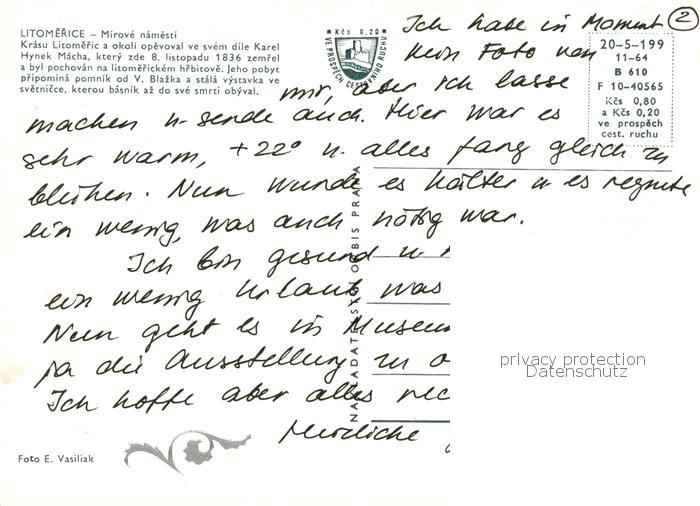 LITOMĚŘICE – Mírové náměstí
Krásu Litoměřic a okolí opěvoval ve svém díle Karel
Hynek Mácha, který zde 8. listopadu 1836 zemřel
a byl pochován na litoměřickém hřbitově. Jeho pobyt
připomíná pomník od V. Blažka a stálá výstavka ve
světničce, kterou básník až do své smrti obýval.
Kčs 0,20
VE PROSPĚCH CESTOVNÍHO RUCHU
2
20-5-199
11-64
B 610
F 10-40565
Kčs 0,80
a Kčs 0,20
ve prospěch
cest. ruchu
Ich habe im Moment
kein Foto von
mir, aber ich lasse
machen u. sende auch. Hier war es
sehr warm, +22° u. alles fang gleich zu
blühen. Nun wurde es kälter u es regnete
ein wenig, was auch nötig war.
Ich bin gesund u.
ein wenig Urlaub was
Nun geht es in Museum
ja die Ausstellung zu
Ich hoffe aber alles
Herzliche
NAKLADATELSTVÍ ORBIS PRAHA
privacy protection
Datenschutz
Foto E. Vasiliak